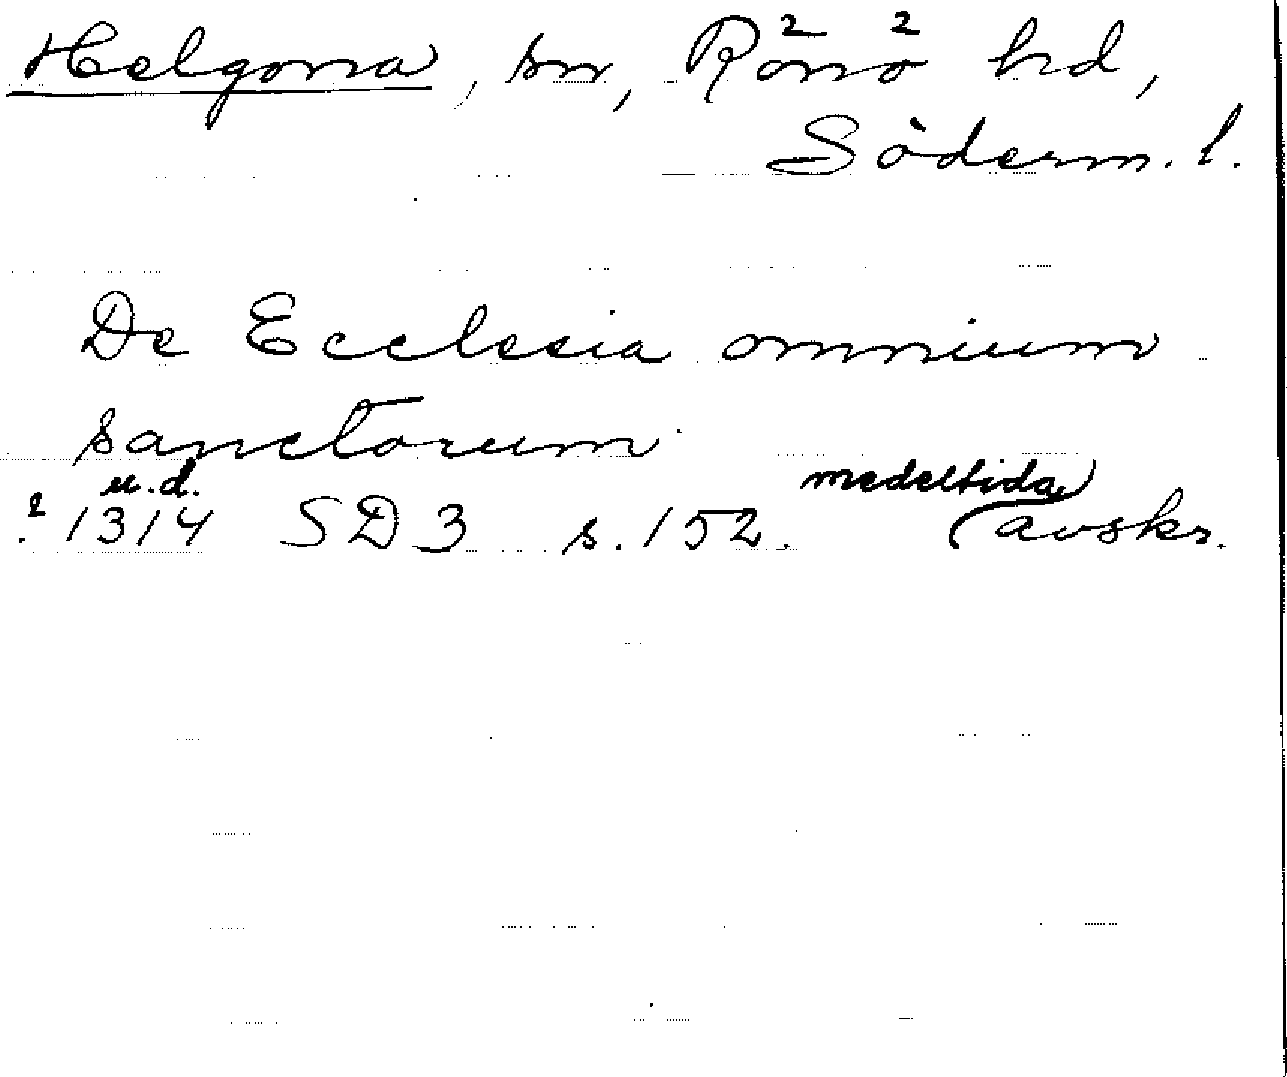 Helgona, sn, Rönö hd,
Söderm. l.
De Ecclesia omnium
sanctorum
u.d.
1314 SD 3 s. 152. (medeltida) avskr.